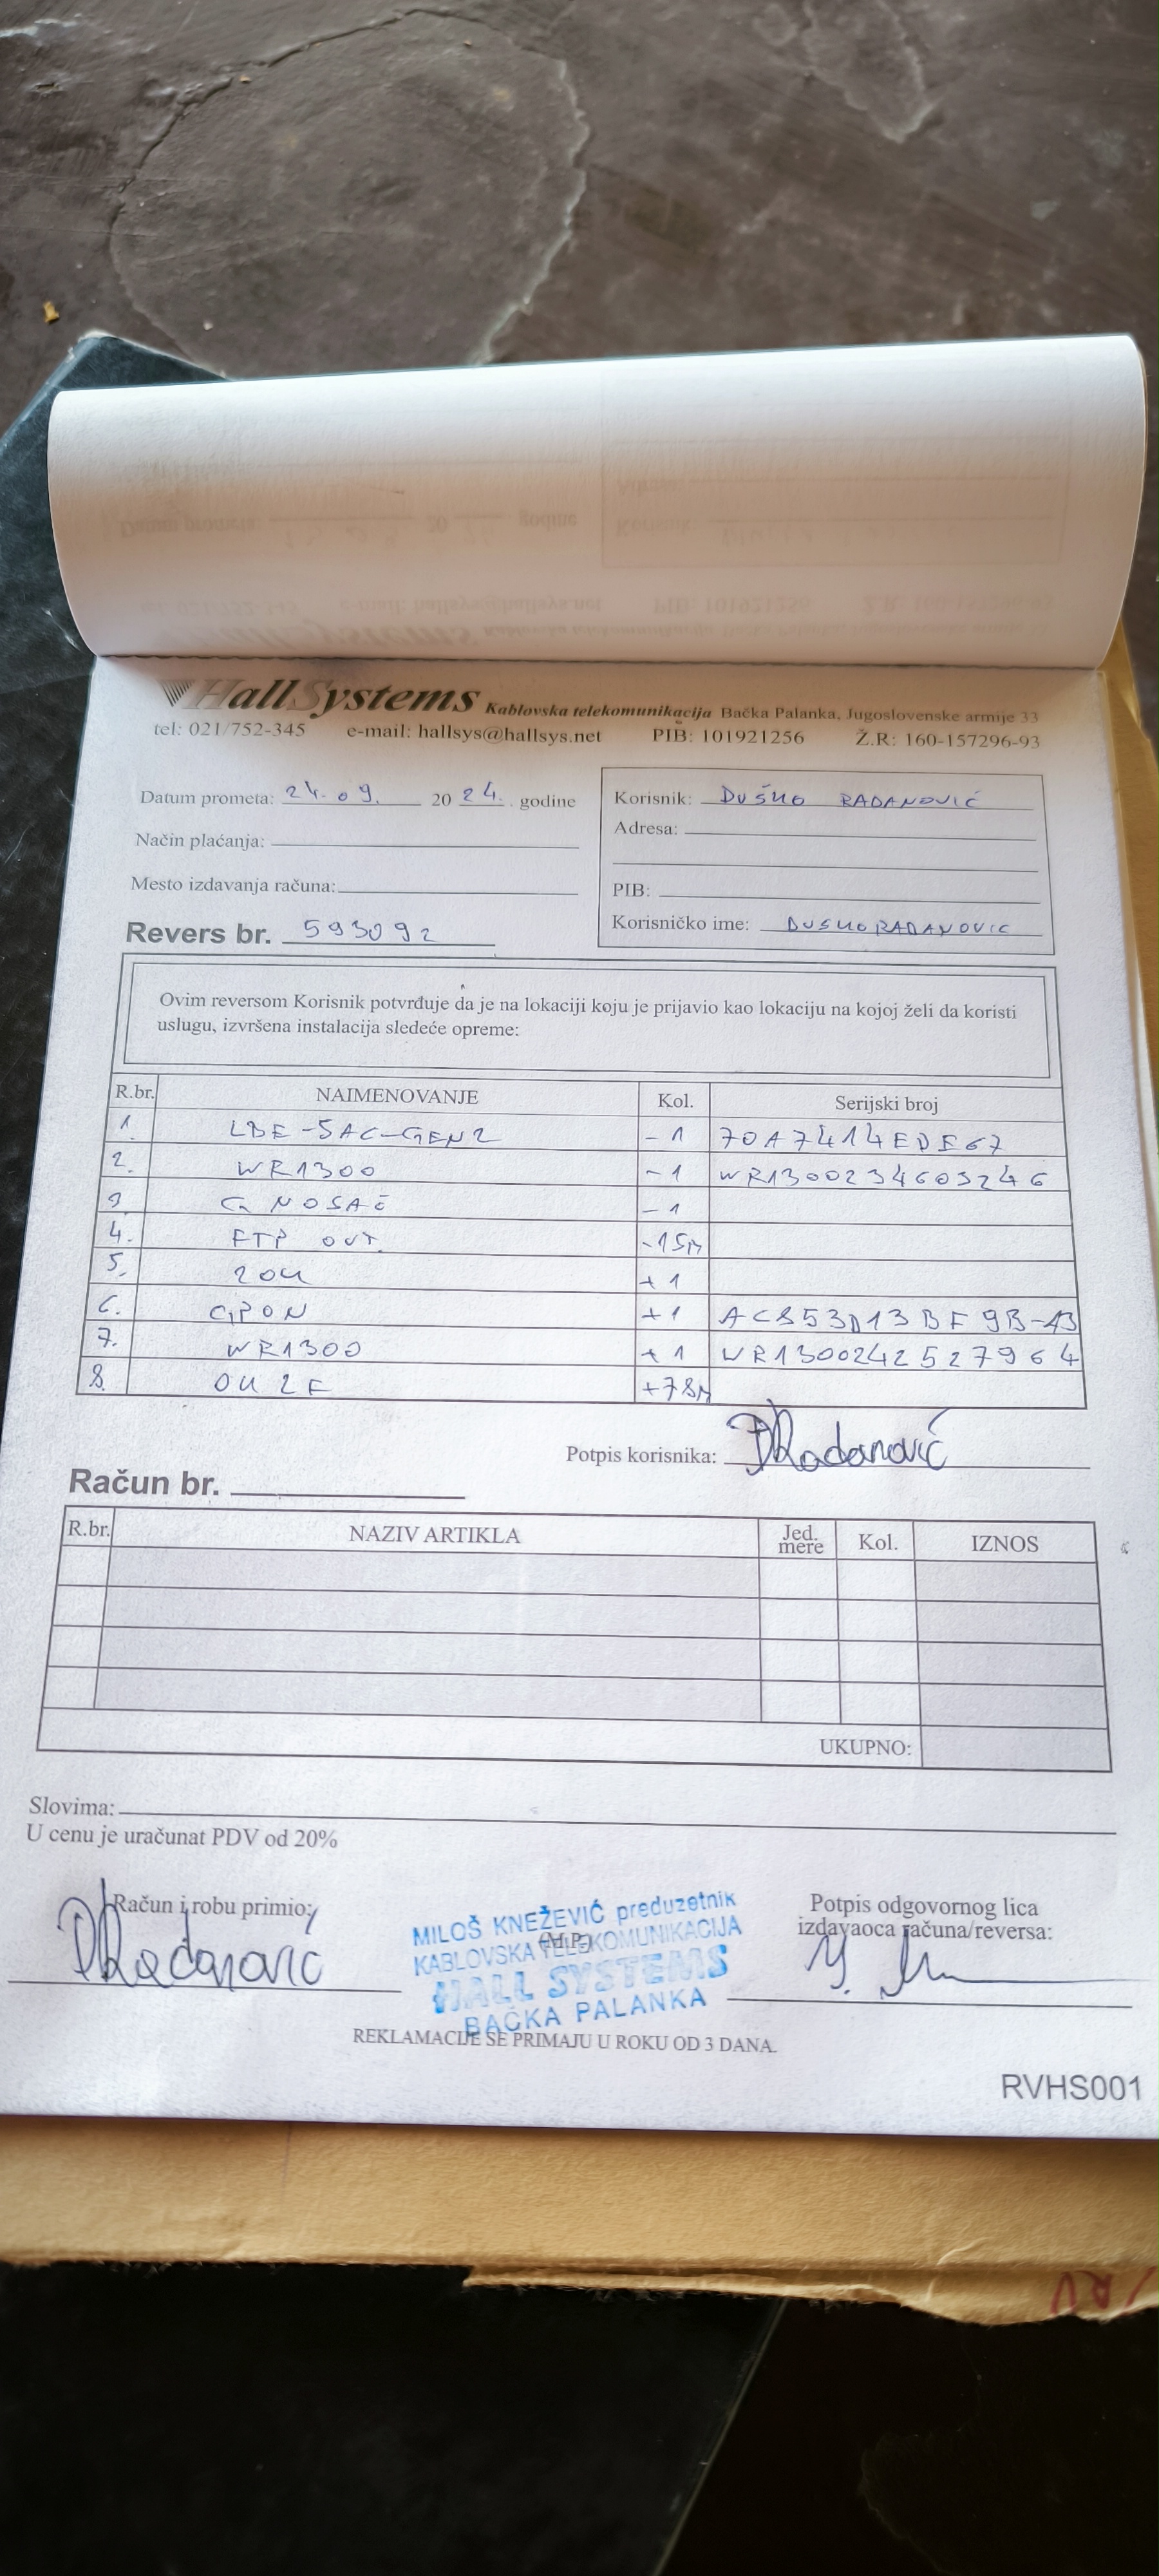 HallSystems Kablovska telekomunikacija Bačka Palanka, Jugoslovenske armije 33
tel: 021/752-345 e-mail: hallsys@hallsys.net PIB: 101921256 Ž.R: 160-157296-93
Datum prometa: 24.09. 20 24. godine
Korisnik: DUŠKO RADANOVIĆ
Adresa:
Način plaćanja:
Mesto izdavanja računa:
PIB:
Korisničko ime: DUSKORADANOVIC
Revers br. 593092
Ovim reversom Korisnik potvrđuje da je na lokaciji koju je prijavio kao lokaciju na kojoj želi da koristi
uslugu, izvršena instalacija sledeće opreme:
R.br. NAIMENOVANJE Kol. Serijski broj
1. LBE-5AC-GEN2 -1 70A7414EDE67
2. WR1300 -1 WR1300234603246
3 G NOSAČ -1
4. FTP OUT. -15m
5. ZOK +1
6. GPON +1 AC853D13BF9B-A3
7. WR1300 +1 WR1300242527964
8. OK 2F +78m
Potpis korisnika: DRadanović
Račun br.
R.br. NAZIV ARTIKLA Jed. mere Kol. IZNOS
UKUPNO:
Slovima:
U cenu je uračunat PDV od 20%
Račun i robu primio:
DRadanović
MILOŠ KNEŽEVIĆ preduzetnik
KABLOVSKA TELEKOMUNIKACIJA
(M.P.)
HALL SYSTEMS
BAČKA PALANKA
Potpis odgovornog lica
izdavaoca računa/reversa:
REKLAMACIJE SE PRIMAJU U ROKU OD 3 DANA.
RVHS001